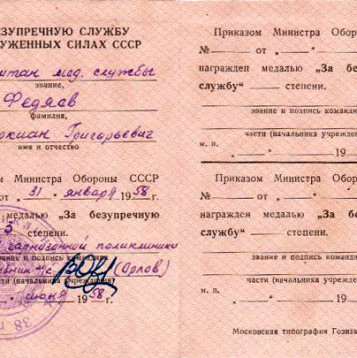 БЕЗУПРЕЧНУЮ СЛУЖБУ
СССР
мед. службы
звание,
Федяев
фамилия,
Григорьевич
имя и отчество
Министра Обороны СССР
от „31“ января 1958 г.
медалью „За безупречную
степени.
гарнизонной поликлиники
звание и подпись
м/с (Орлов)
части (начальника учреждения)
июня 1958 г.
38
Приказом Министра Обороны
№ от „ “
награжден медалью „За
службу“ степени.
звание и подпись
части (начальника
м. п. „ “ 19
Приказом Министра Обороны
№ от „ “
награжден медалью „За
службу“ степени.
звание и подпись
части (начальника
м. п. „ “ 19
Московская типография